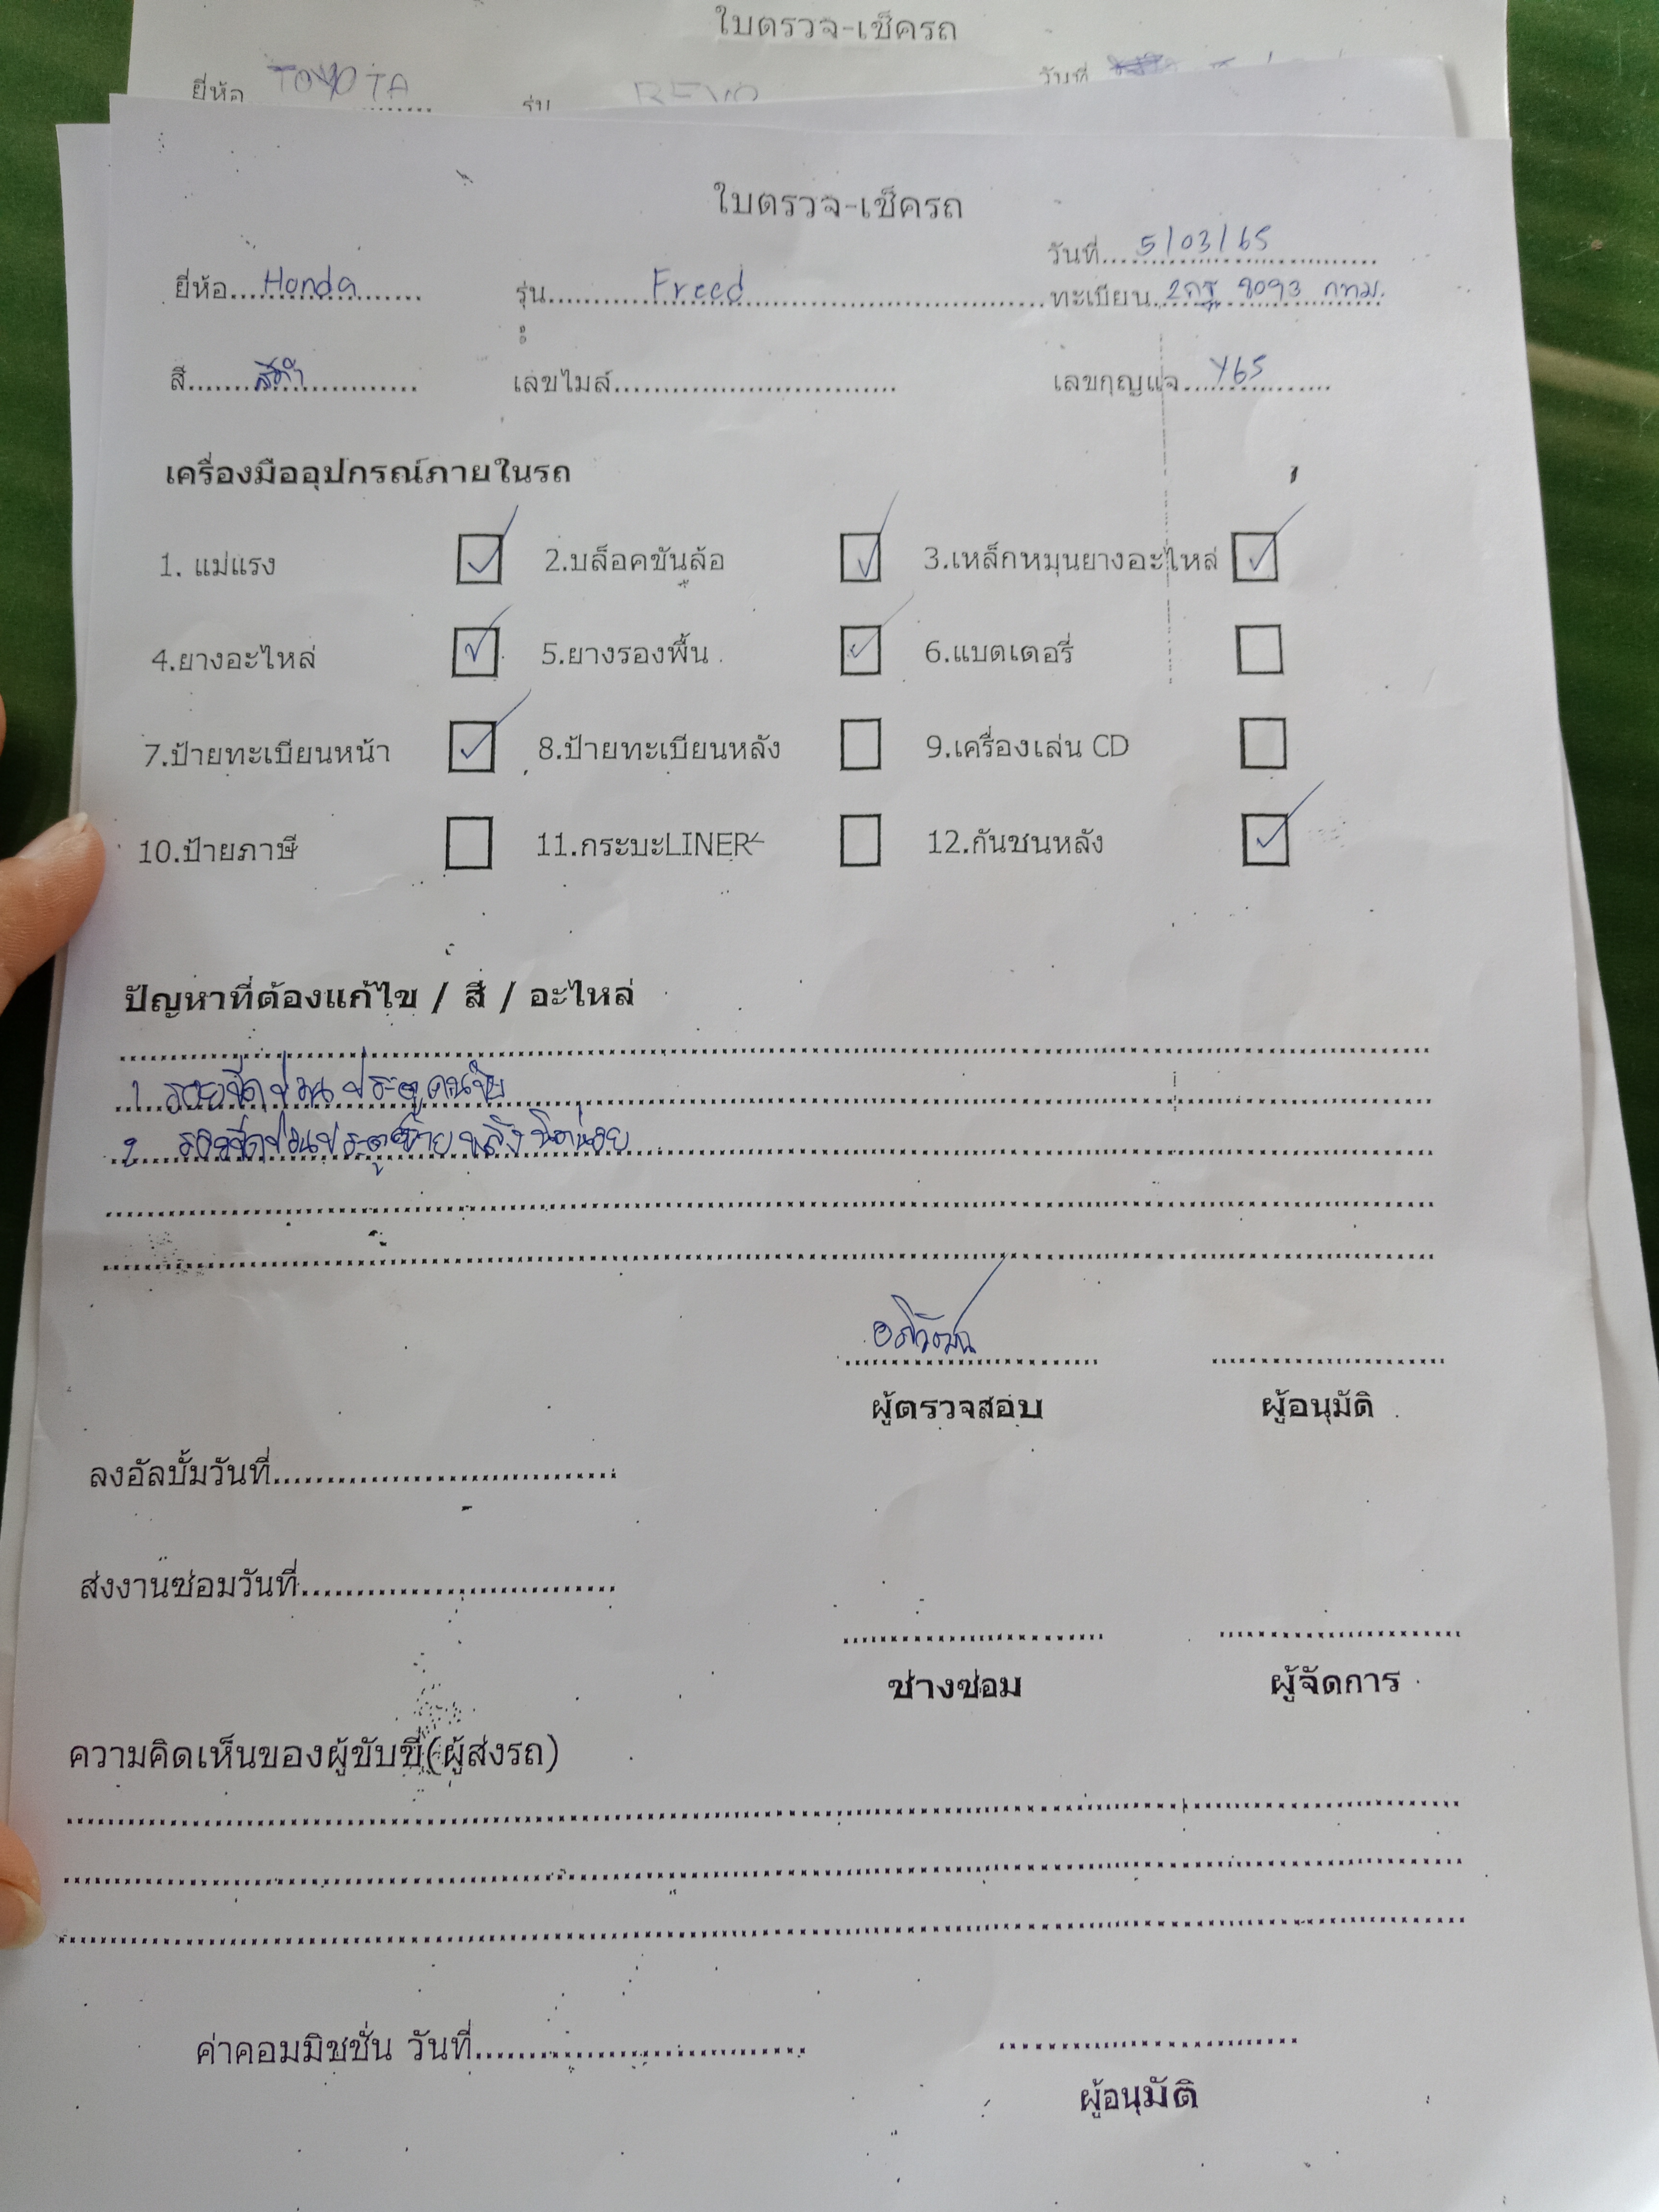 ใบตรวจ-เช็ครถ
ยี่ห้อ TOYOTA รุ่น REVO วันที่
ใบตรวจ-เช็ครถ
วันที่ 5/03/65
ยี่ห้อ Honda รุ่น Freed ทะเบียน 2กฐ 8093 กทม.
สี สีดำ เลขไมล์ เลขกุญแจ Y65
เครื่องมืออุปกรณ์ภายในรถ
1. แม่แรง 2.บล็อคขันล้อ 3.เหล็กหมุนยางอะไหล่
4.ยางอะไหล่ 5.ยางรองพื้น 6.แบตเตอรี่
7.ป้ายทะเบียนหน้า 8.ป้ายทะเบียนหลัง 9.เครื่องเล่น CD
10.ป้ายภาษี 11.กระบะLINER 12.กันชนหลัง
ปัญหาที่ต้องแก้ไข / สี / อะไหล่
1. รอยขีดข่วน ประตูคนขับ
2 รอยขีดข่วนประตูซ้าย หลัง นิดหน่อย
ผู้ตรวจสอบ ผู้อนุมัติ
ลงอัลบั้มวันที่
ส่งงานซ่อมวันที่
ช่างซ่อม ผู้จัดการ
ความคิดเห็นของผู้ขับขี่(ผู้ส่งรถ)
ค่าคอมมิชชั่น วันที่
ผู้อนุมัติ